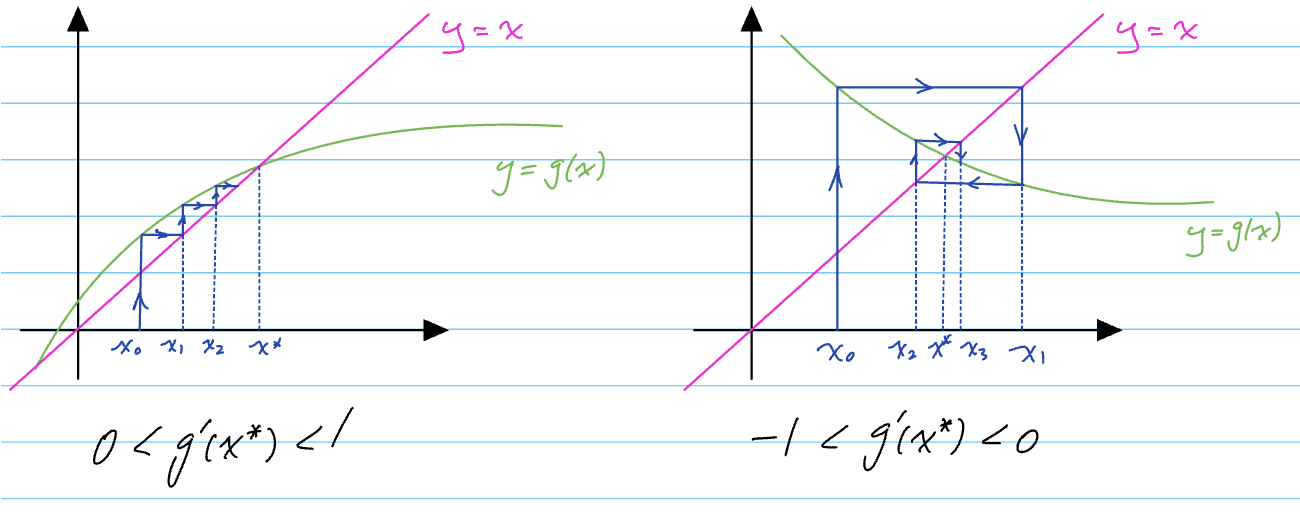 y = x
y = g(x)
x₀ x₁ x₂ x*
0 < g'(x*) < 1
y = x
y = g(x)
x₀ x₂ x* x₃ x₁
-1 < g'(x*) < 0